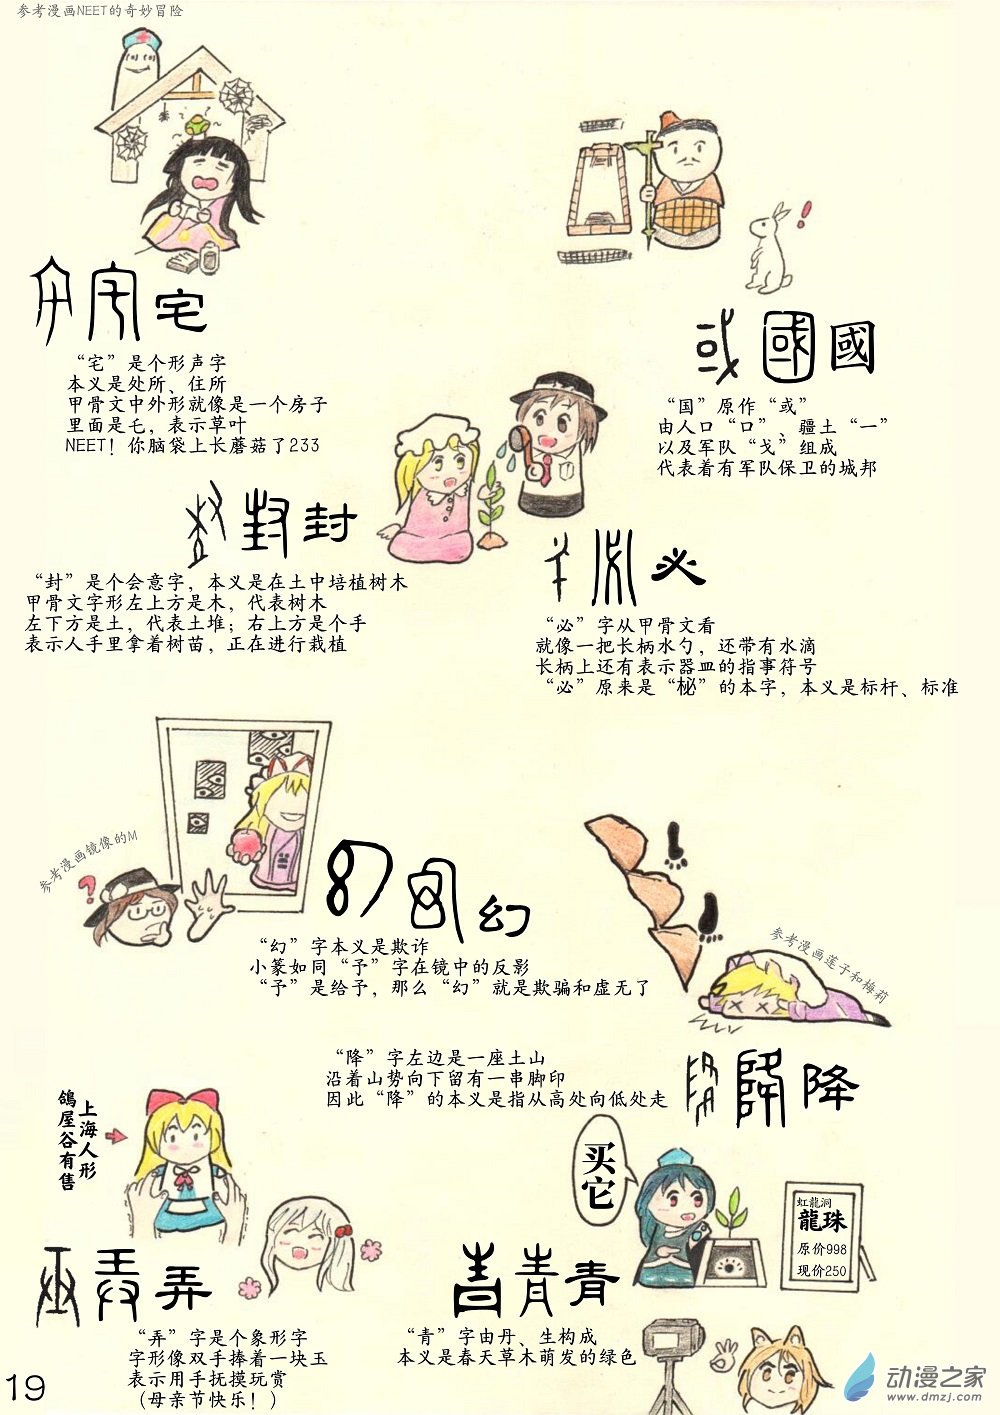 参考漫画NEET的奇妙冒险
宅
“宅”是个形声字
本义是处所、住所
甲骨文中外形就像是一个房子
里面是乇，表示草叶
NEET！你脑袋上长蘑菇了233
或國國
“国”原作“或”
由人口“口”、疆土“一”
以及军队“戈”组成
代表着有军队保卫的城邦
封封
“封”是个会意字，本义是在土中培植树木
甲骨文字形左上方是木，代表树木
左下方是土，代表土堆；右上方是个手
表示人手里拿着树苗，正在进行栽植
必
“必”字从甲骨文看
就像一把长柄水勺，还带有水滴
长柄上还有表示器皿的指事符号
“必”原来是“柲”的本字，本义是标杆、标准
参考漫画镜像的M
幻
“幻”字本义是欺诈
小篆如同“予”字在镜中的反影
“予”是给予，那么“幻”就是欺骗和虚无了
参考漫画莲子和梅莉
降降
“降”字左边是一座土山
沿着山势向下留有一串脚印
因此“降”的本义是指从高处向低处走
上海人形
鴿屋谷有售
弄
“弄”字是个象形字
字形像双手捧着一块玉
表示用手抚摸玩赏
（母亲节快乐！）
买它
虹龍洞
龍珠
原价998
现价250
青青
“青”字由丹、生构成
本义是春天草木萌发的绿色
19
动漫之家
www.dmzj.com